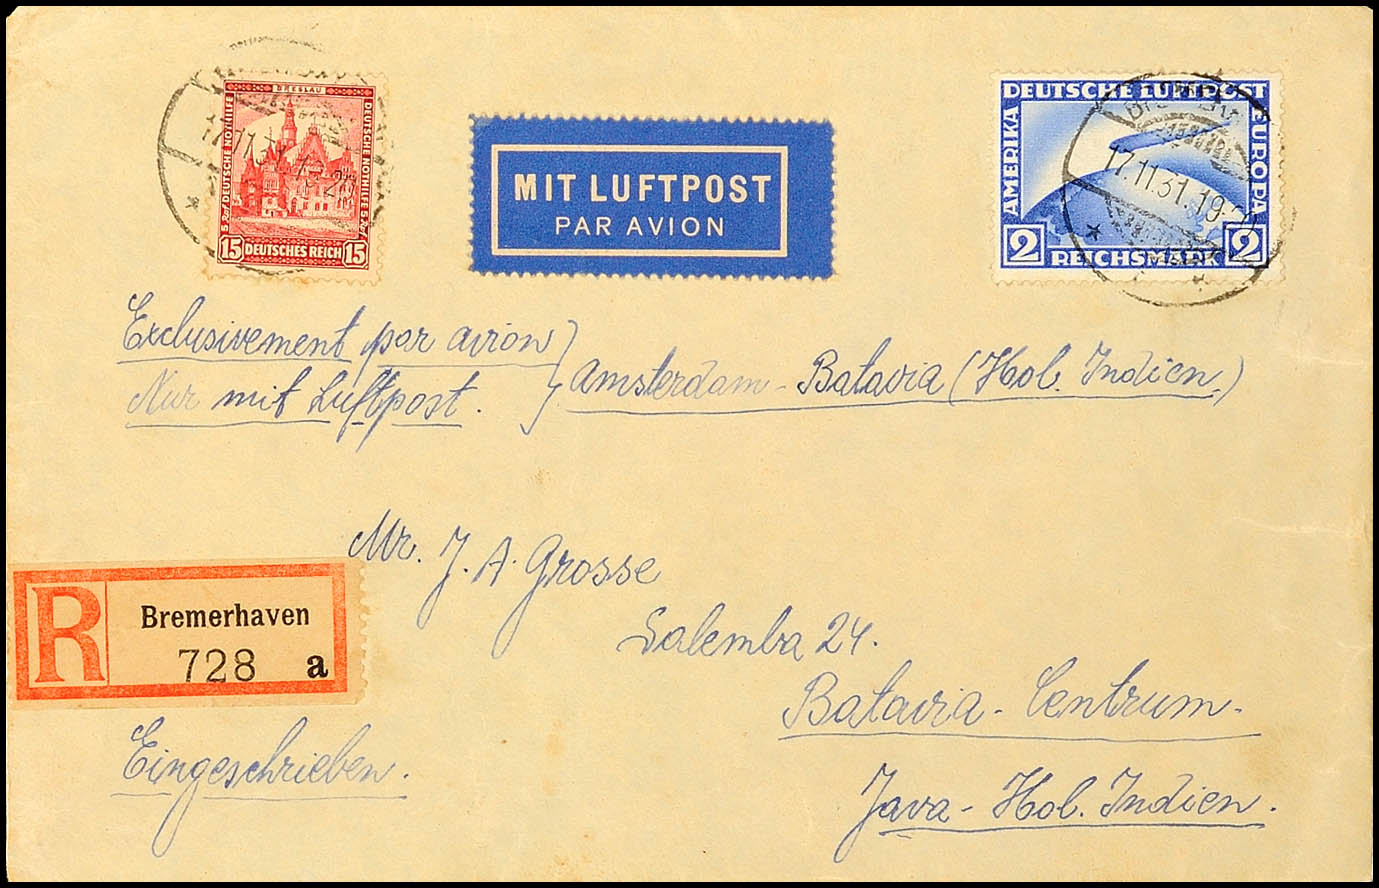 BRESLAU
5 Rpf DEUTSCHE NOTHILFE
DEUTSCHE NOTHILFE 5 Rpf
15 DEUTSCHES REICH 15
17.11.31.
MIT LUFTPOST
PAR AVION
DEUTSCHE LUFTPOST
AMERIKA
EUROPA
2 REICHSMARK 2
17.11.31.19-20
Exclusivement par avion }
Nur mit Luftpost. } Amsterdam - Batavia (Hol. Indien.)
Mr. J. A. Grosse
Salemba 24.
Batavia - Centrum -
Java - Hol. Indien.
R Bremerhaven
728 a
Eingeschrieben.